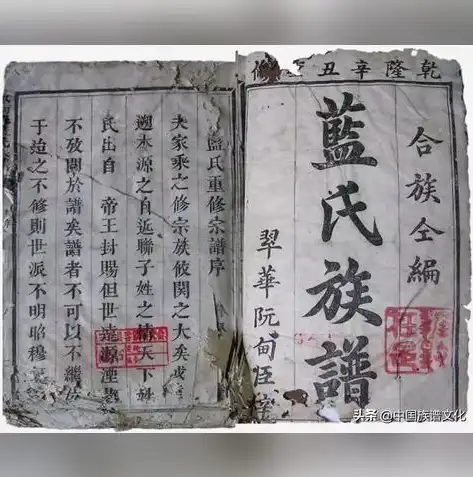 乾隆辛丑修
合族仝編
藍氏族譜
翠華阮甸臣
藍氏重修宗譜序
夫家乘之修宗族攸関之大矣
遡本源之自近聯子姓之情天下
氏出自 帝王封賜但世遠源湮
不攷関於譜矣譜者不可以不繼
于迨之不修則世派不明昭穆
头条 @中国族谱文化